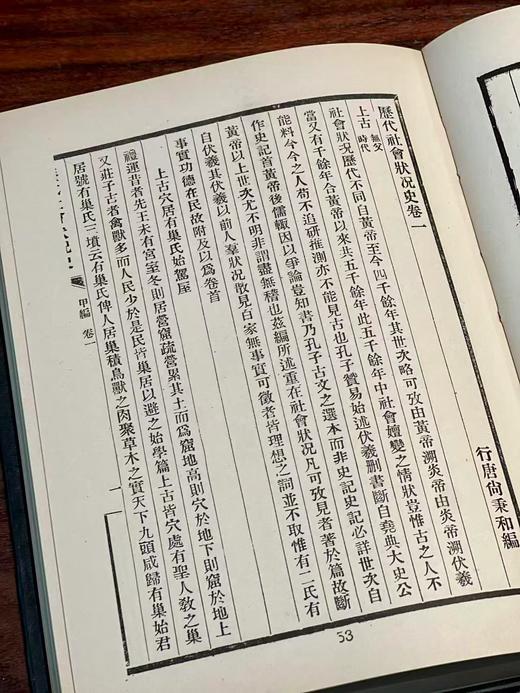 歷代社會狀況史卷一
行唐尙秉和編
上古 無父時代
社會狀況歷代不同自黃帝至今四千餘年其世次略可攷由黃帝溯炎帝由炎帝溯伏羲
當又有千餘年合黃帝以來共五千餘年此五千餘年中社會嬗變之情狀豈惟古之人不
能料今今之人苟不追研推測亦不能見古也孔子贊易始述伏羲刪書斷自堯典大史公
作史記首黃帝後儒輒因以爭論豈知書乃孔子古文之選本而非史記史記必詳世次自
黃帝以上世次尤不明非謂盡無稽也茲編所述重在社會狀況凡可攷見者著於篇故斷
自伏羲其伏羲以前人羣狀況散見百家無事實可徵者皆理想之詞並不取惟有二氏有
事實功德在民故附及以爲卷首
上古穴居有巢氏始駕屋
禮運昔者先王未有宮室冬則居營窟疏營累其土而爲窟地高則穴於地下則窟於地上
又莊子古者禽獸多而人民少於是民皆巢居以避之始學篇上古皆穴處有聖人敎之巢
居號有巢氏三墳云有巢氏俾人居巢積鳥獸之肉聚草木之實天下九頭咸歸有巢始君
會狀況史
甲編 卷一
一
53